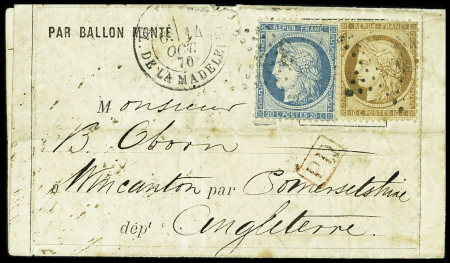 REPUB. FRANC.
REPUB. FRANC.
PAR BALLON MONTÉ.
14
OCT.
70
DE LA MADELEI
20 C. POSTES 20 C.
10 C. POSTES 10 C.
Monsieur
B Oborn
PD
à Wincanton par Somersetshire
dépt Angleterre.